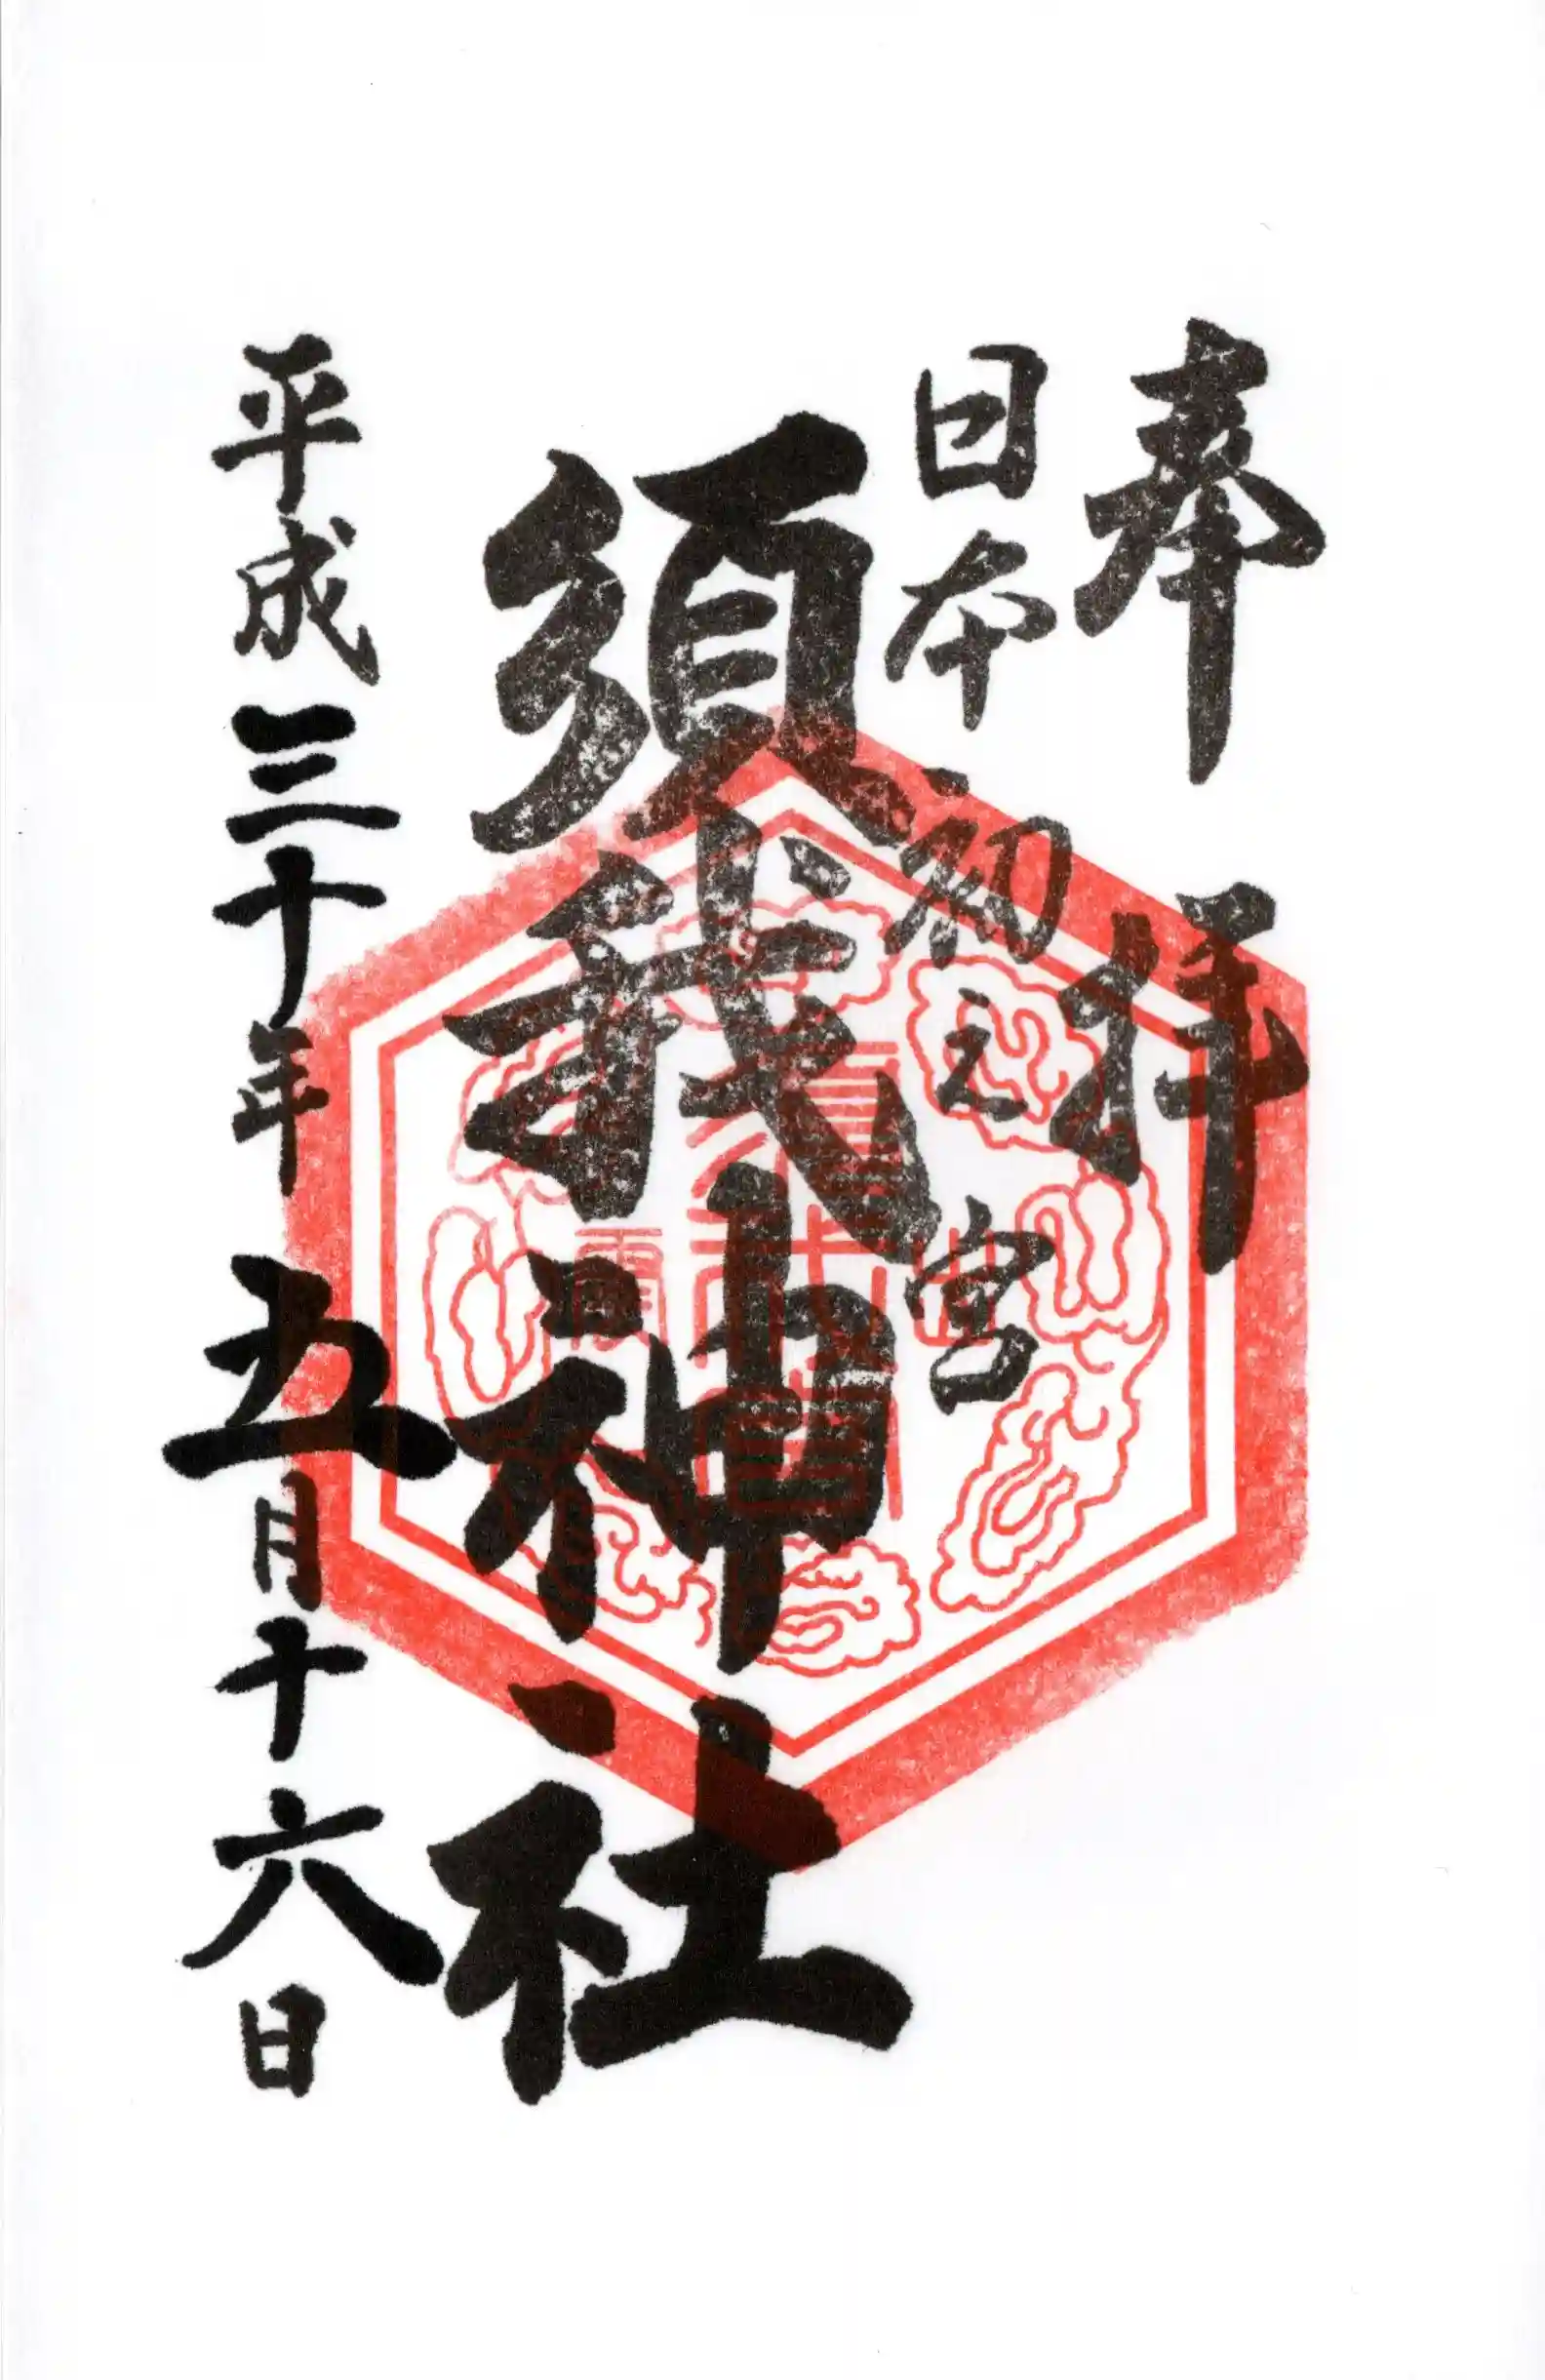 奉拝
日本初之宮
須我神社
平成三十年五月十六日